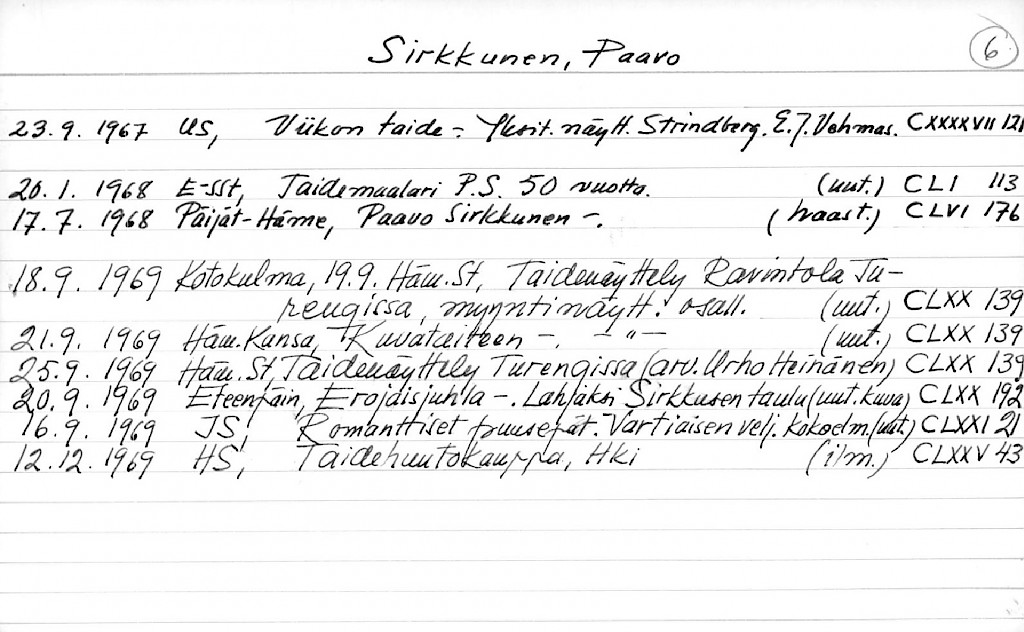 Sirkkunen, Paavo 6
23.9. 1967 US, Viikon taide -. Yksit. näytt. Strindberg. E.J. Vehmas. CXXXXVII 121
20.1. 1968 E-SSt, Taidemaalari P.S. 50 vuotta. (uut.) CLI 113
17.7. 1968 Päijät-Häme, Paavo Sirkkunen -. (haast.) CLVI 176
18.9. 1969 Kotokulma, 19.9. Häm.St, Taidenäyttely Ravintola Tu-
rengissa, myyntinäytt. osall. (uut.) CLXX 139
21.9. 1969 Häm.Kansa, Kuvataiteen -. -"- (uut.) CLXX 139
25.9. 1969 Häm.St, Taidenäyttely Turengissa (arv. Urho Heinänen) CLXX 139
20.9. 1969 Eteenpäin, Erojäisjuhla -. Lahjaksi Sirkkusen taulu (uut. kuva) CLXX 192
16.9. 1969 JS, Romanttiset puusepät. Vartiaisen velj. kokoelm. (uut.) CLXXI 21
12.12. 1969 HS, Taidehuutokauppa, Hki (ilm.) CLXXV 43